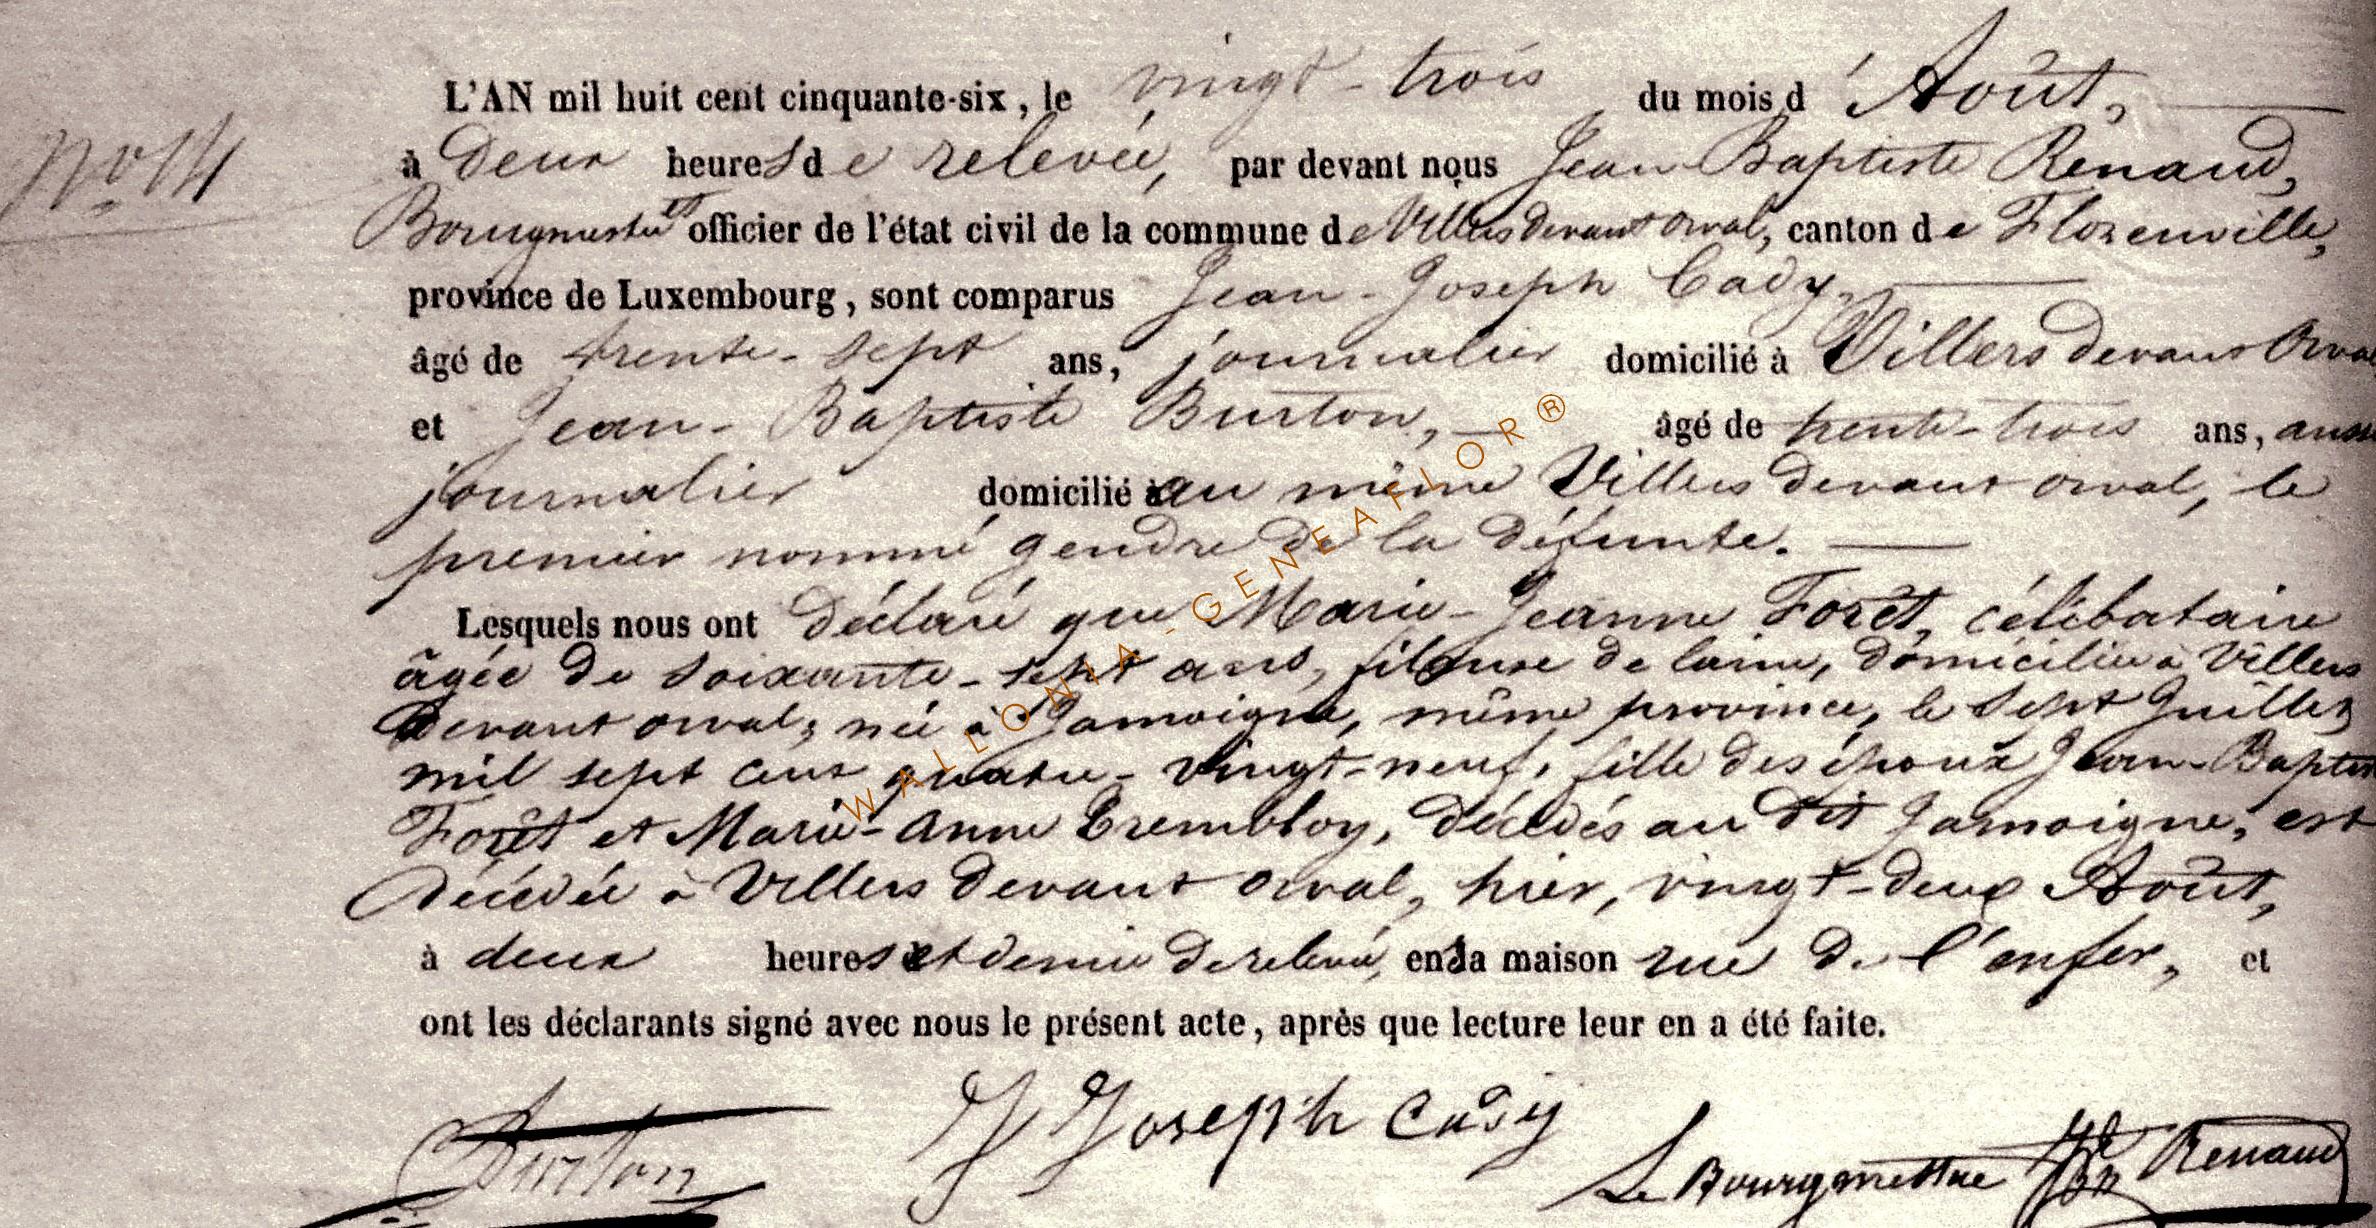 N° 14
L'AN mil huit cent cinquante-six, le vingt-trois du mois d'Août,
à deux heures de relevée, par devant nous Jean Baptiste Renaud,
Bourgmestre et officier de l'état civil de la commune de Villers devant orval, canton de Florenville,
province de Luxembourg, sont comparus Jean-Joseph Cady,
âgé de trente-sept ans, journalier domicilié à Villers devant Orval
et Jean-Baptiste Burton, âgé de trente-trois ans, aussi
journalier domicilié au même Villers devant orval, le
premier nommé gendre de la défunte.
Lesquels nous ont déclaré que Marie-Jeanne Forêt, célibataire
âgée de soixante-sept ans, fileuse de laine, domiciliée à Villers
devant orval, née à Jamoigne, même province, le sept Juillet
mil sept cent quatre-vingt-neuf, fille des époux Jean-Baptiste
Forêt et Marie-Anne Trembloy, décédés au dit Jamoigne, est
décédée à Villers devant orval, hier, vingt-deux Août,
à deux heures et demie de relevée, en sa maison rue de l'enfer, et
ont les déclarants signé avec nous le présent acte, après que lecture leur en a été faite.
Burton J Joseph Cady Le Bourgmestre JBte Renaud
WALLONIA-GENEAFLOR®